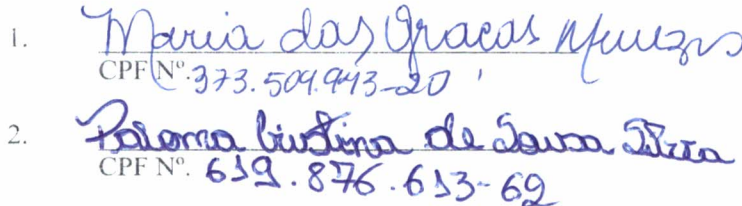 1. Maria das Graças Menezes
CPF Nº. 373.504.943-20
2. Paloma Cristina de Sousa
CPF Nº. 619.876.613-62